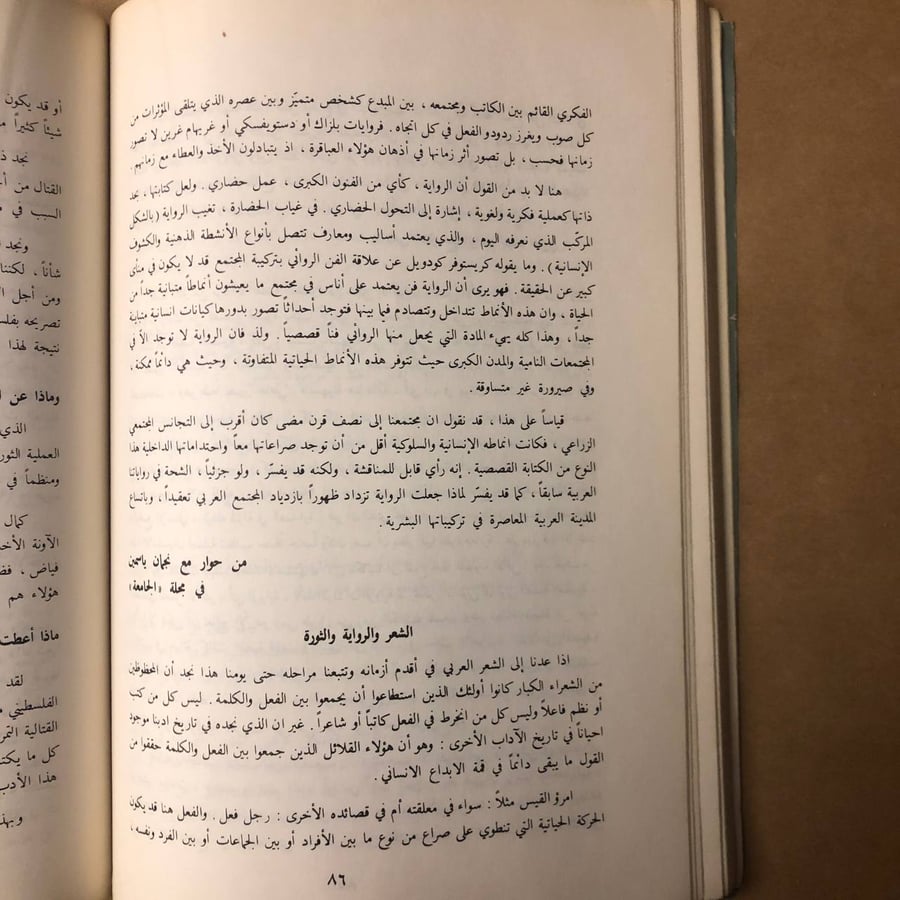 الفكري القائم بين الكاتب ومجتمعه ، بين المبدع كشخص متميّز وبين عصره الذي يتلقى المؤثرات من
كل صوب ويغرز ردودو الفعل في كل اتجاه . فروايات بلزاك أو دستويفسكي أو غريهام غرين لا تصور
زمانها فحسب ، بل تصور أثر زمانها في أذهان هؤلاء العباقرة ، اذ يتبادلون الأخذ والعطاء مع زمانهم.
هنا لا بد من القول أن الرواية ، كأي من الفنون الكبرى ، عمل حضاري . ولعل كتابتها ، بحد
ذاتها كعملية فكرية ولغوية ، إشارة إلى التحول الحضاري . في غياب الحضارة ، تغيب الرواية (بالشكل
المركّب الذي نعرفه اليوم ، والذي يعتمد أساليب ومعارف تتصل بأنواع الأنشطة الذهنية والكشوف
الإنسانية) . وما يقوله كريستوفر كودويل عن علاقة الفن الروائي بتركيبة المجتمع قد لا يكون في منأى
كبير عن الحقيقة . فهو يرى أن الرواية فن يعتمد على أناس في مجتمع ما يعيشون أنماطاً متباينة جداً من
الحياة ، وان هذه الأنماط تتداخل وتتصادم فيما بينها فتوجد أحداثاً تصور بدورها كيانات انسانية متباينة
جداً ، وهذا كله يهيء المادة التي يجعل منها الروائي فناً قصصياً . ولذ فان الرواية لا توجد الاّ في
المجتمعات النامية والمدن الكبرى حيث تتوفر هذه الأنماط الحياتية المتفاوتة ، وحيث هي دائماً ممكنة ،
وفي صيرورة غير متساوقة .
قياساً على هذا ، قد نقول ان مجتمعنا إلى نصف قرن مضى كان أقرب إلى التجانس المجتمعي
الزراعي ، فكانت انماطه الإنسانية والسلوكية أقل من أن توجد صراعاتها معاً واحتداماتها الداخلية هذا
النوع من الكتابة القصصية . إنه رأي قابل للمناقشة ، ولكنه قد يفسّر ، ولو جزئياً ، الشحة في رواياتنا
العربية سابقاً ، كما قد يفسّر لماذا جعلت الرواية تزداد ظهوراً بازدياد المجتمع العربي تعقيداً ، وباتساع
المدينة العربية المعاصرة في تركيباتها البشرية .
من حوار مع نجمان ياسين
في مجلة «الجامعة»
الشعر والرواية والثورة
اذا عدنا إلى الشعر العربي في أقدم أزمانه وتتبعنا مراحله حتى يومنا هذا نجد أن المحظوظين
من الشعراء الكبار كانوا أولئك الذين استطاعوا أن يجمعوا بين الفعل والكلمة . ليس كل من كتب
أو نظم فاعلاً وليس كل من انخرط في الفعل كاتباً أو شاعراً . غير ان الذي نجده في تاريخ ادبنا موجود
احياناً في تاريخ الآداب الأخرى : وهو أن هؤلاء القلائل الذين جمعوا بين الفعل والكلمة حققوا من
القول ما يبقى دائماً في قمة الابداع الانساني .
امرؤ القيس مثلاً : سواء في معلقته أم في قصائده الأخرى : رجل فعل . والفعل هنا قد يكون
الحركة الحياتية التي تنطوي على صراع من نوع ما بين الأفراد أو بين الجماعات أو بين الفرد ونفسه ،
٨٦
أو قد يكون
شيئاً كثيراً
نجد
القتال من
السبب في
ونجد
شأناً ، لكننا
ومن أجل
تصريحه
نتيجة لهذا
وماذا عن
الذي
العملية
ومنظماً في
كمال
الآونة
فياض ،
هؤلاء هم
ماذا أعطت
لقد
الفلسطيني
القتالية
كل ما
هذا
وبهذ